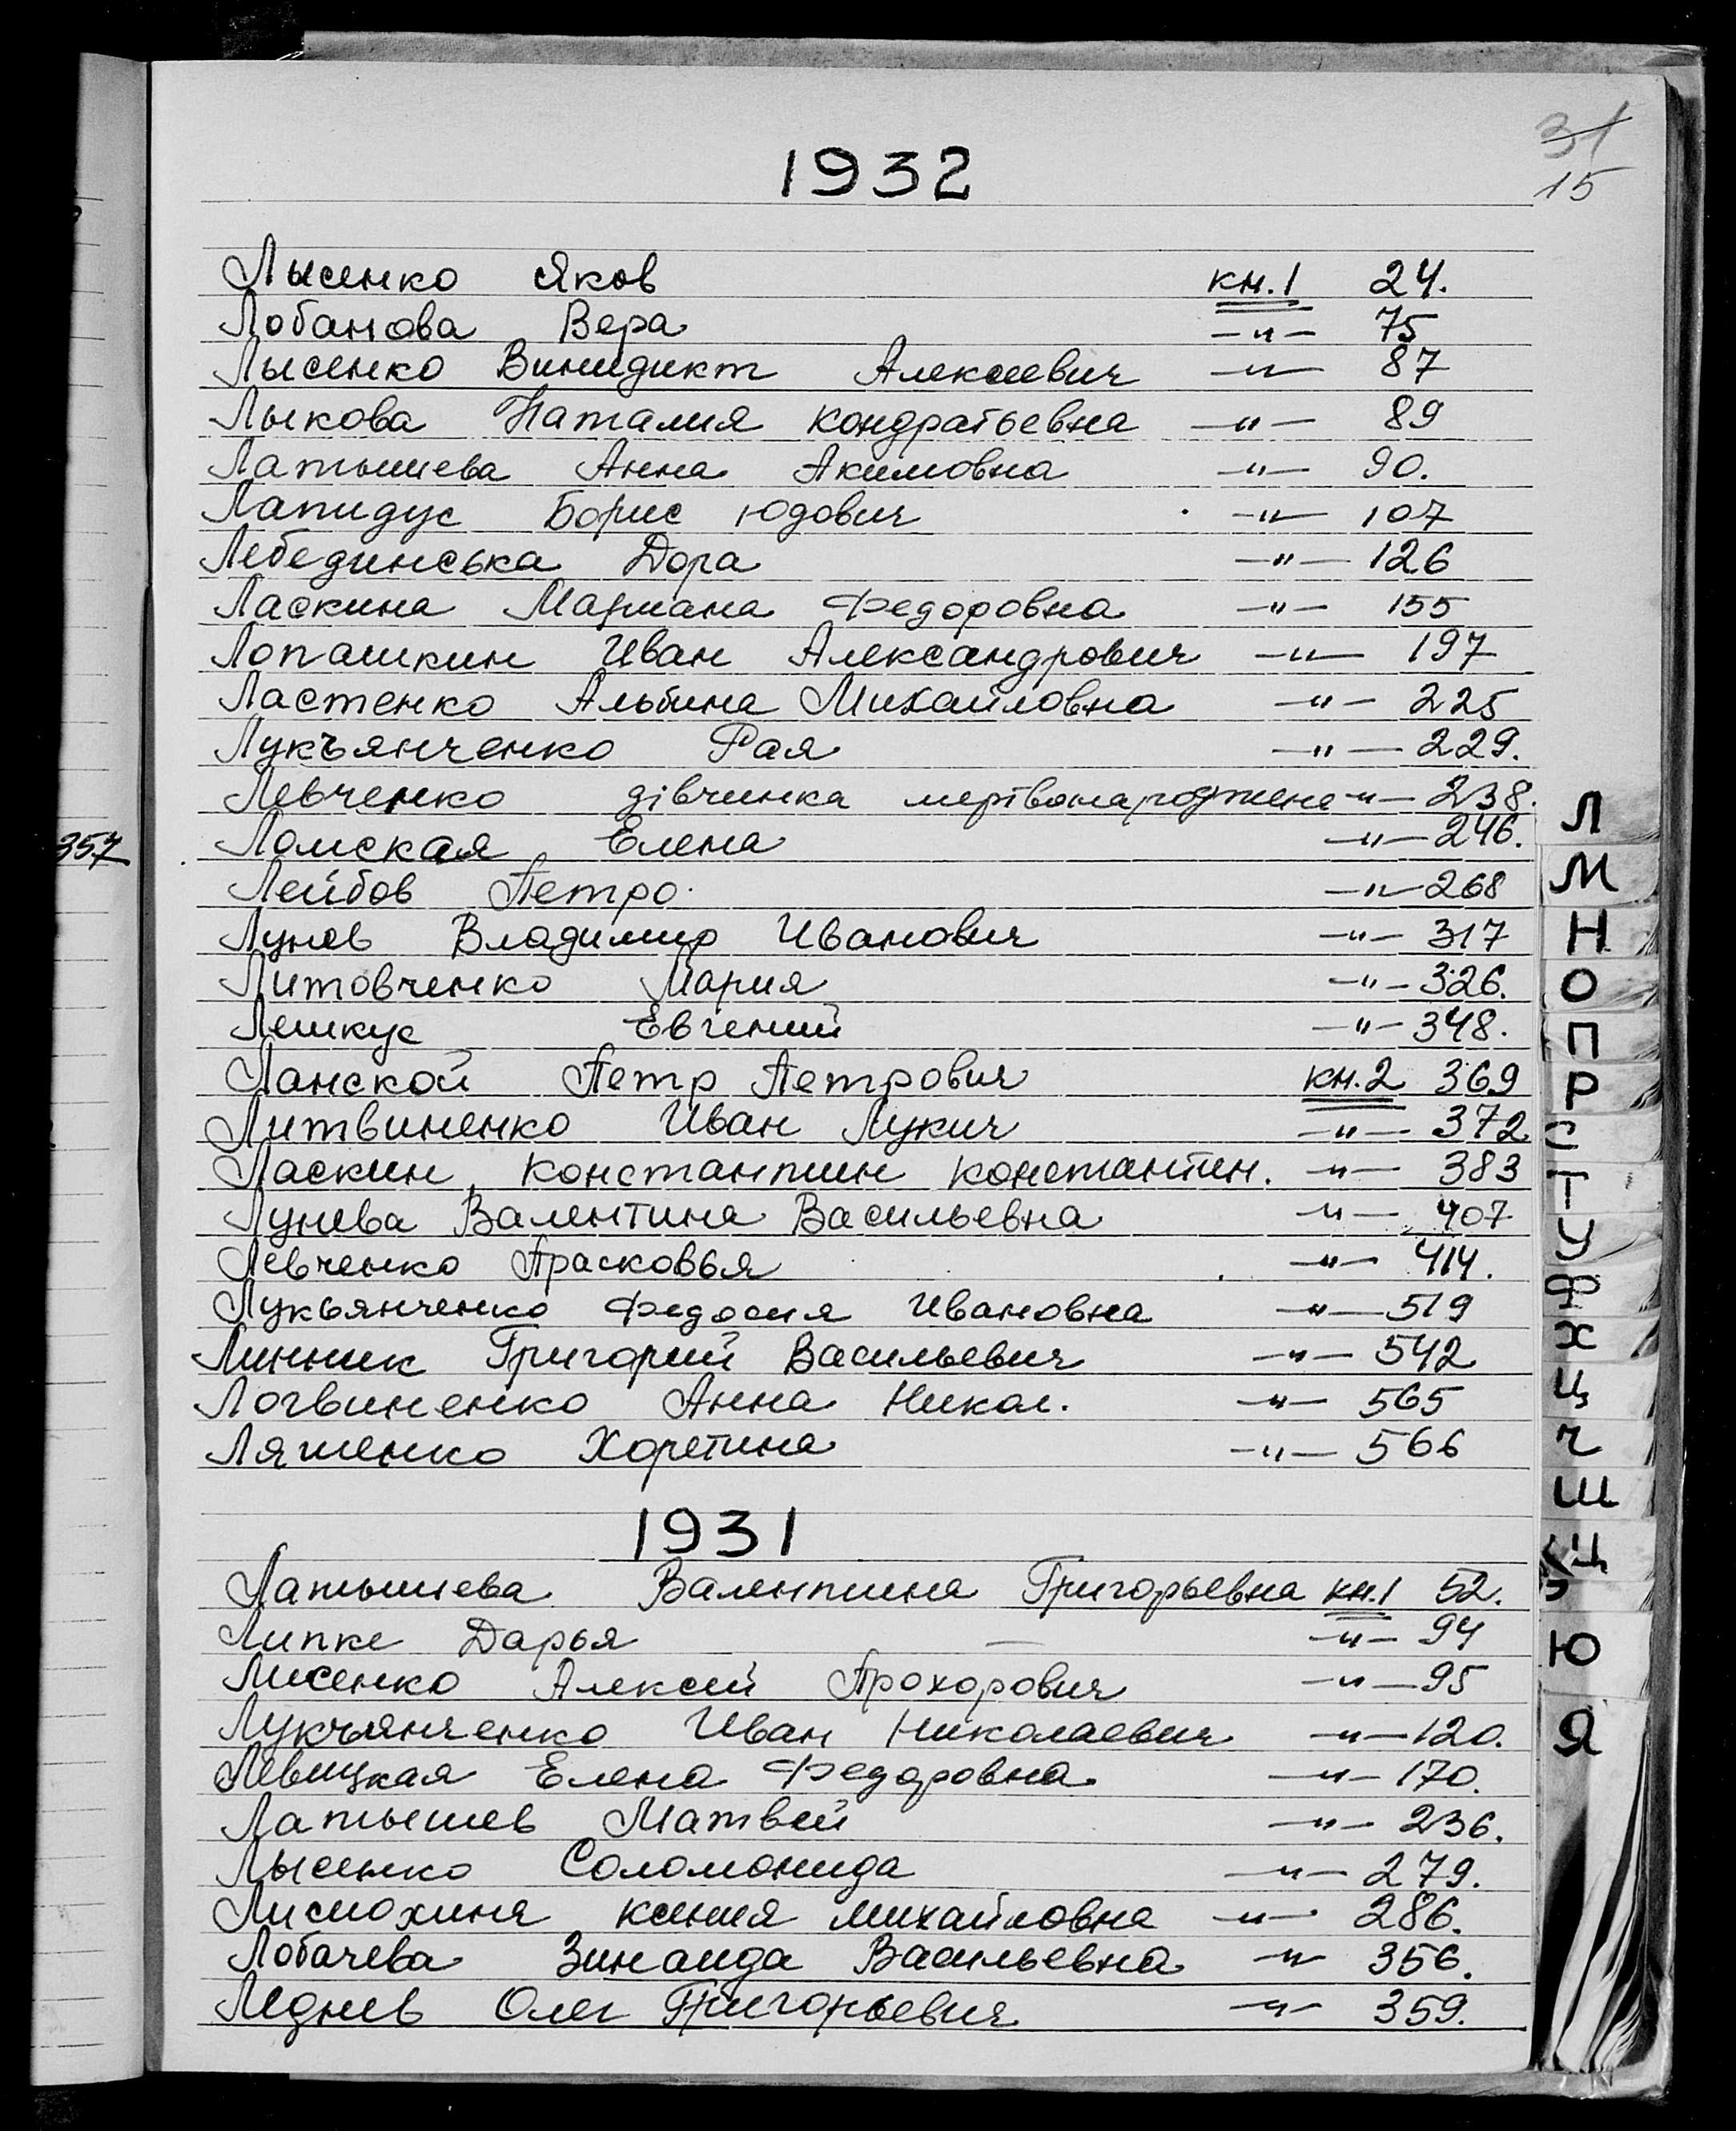 31
15
1932
Лысенко Яков кн.1 24.
Лобанова Вера -"- 75
Лысенко Винидикт Алексеевич -"- 87
Лыкова Наталия Кондратьевна -"- 89
Латышева Анна Акимовна -"- 90.
Лапидус Борис Юдович -"- 107
Лебединська Дора -"- 126
Ласкина Мариана Федоровна -"- 155
Лопашкин Иван Александрович -"- 197
Ластенко Альбина Михайловна -"- 225
Лукъянченко Рая -"- 229.
Левченко дівчинка мертвонароджена -"- 238.
Ломская Елена -"- 246.
357
Лейбов Петро -"- 268
Лунев Владимир Иванович -"- 317
Литовченко Мария -"- 326.
Лешкус Евгений -"- 348.
Ланской Петр Петрович кн.2 369
Литвиненко Иван Лукич -"- 372
Ласкин Константин Константин. -"- 383
Лунева Валентина Васильевна -"- 407
Левченко Прасковья -"- 414.
Лукьянченко Федосия Ивановна -"- 519
Линник Григорий Васильевич -"- 542
Логвиненко Анна Никол. -"- 565
Ляшенко Хоретина -"- 566
1931
Латышева Валентина Григорьевна кн.1 52.
Липке Дарья — -"- 94
Лисенко Алексей Прохорович -"- 95
Лукъянченко Иван Николаевич -"- 120.
Левицкая Елена Федоровна -"- 170.
Латышев Матвей -"- 236.
Лысенко Соломонида -"- 279.
Лисюхина Ксения Михайловна -"- 286.
Лобачева Зинаида Васильевна -"- 356.
Леднев Олег Григорьевич -"- 359.
Л
М
Н
О
П
Р
С
Т
У
Ф
Х
Ц
Ч
Ш
Щ
Э
Ю
Я